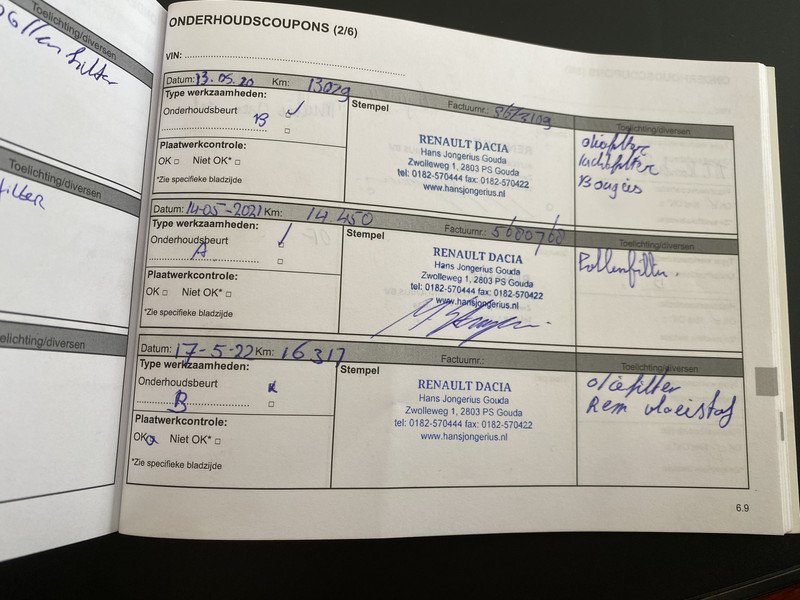 Toelichting/diversen
Pollenfilter
Toelichting/diversen
filter
elichting/diversen
ONDERHOUDSCOUPONS (2/6)
VIN:
Datum: 13.05.20 Km: 13029
Type werkzaamheden:
Stempel
Factuurnr.:
Toelichting/diversen
Onderhoudsbeurt
B
Plaatwerkcontrole:
OK □ Niet OK* □
*Zie specifieke bladzijde
RENAULT DACIA
Hans Jongerius Gouda
Zwolleweg 1, 2803 PS Gouda
tel: 0182-570444 fax: 0182-570422
www.hansjongerius.nl
oliefilter
luchtfilter
Bougies
Datum: 14-05-2021 Km: 14450
Type werkzaamheden:
Stempel
Factuurnr.: 5680768
Toelichting/diversen
Onderhoudsbeurt
A
Plaatwerkcontrole:
OK □ Niet OK* □
*Zie specifieke bladzijde
RENAULT DACIA
Hans Jongerius Gouda
Zwolleweg 1, 2803 PS Gouda
tel: 0182-570444 fax: 0182-570422
www.hansjongerius.nl
Pollenfilter.
Datum: 17-5-22 Km: 16317
Type werkzaamheden:
Stempel
Factuurnr.:
Toelichting/diversen
Onderhoudsbeurt
B
Plaatwerkcontrole:
OK □ Niet OK* □
*Zie specifieke bladzijde
RENAULT DACIA
Hans Jongerius Gouda
Zwolleweg 1, 2803 PS Gouda
tel: 0182-570444 fax: 0182-570422
www.hansjongerius.nl
oliefilter
Rem vloeistof
6.9